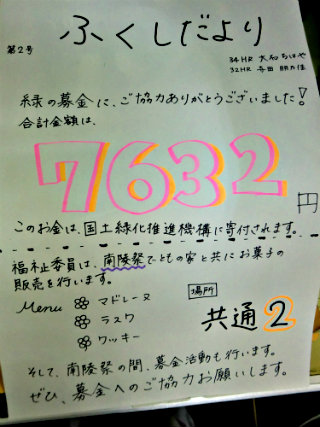 ふくしだより
第2号
34HR 大和ちはや
32HR
緑の募金に、ご協力ありがとうございました!
合計金額は、
7632
円
このお金は、国土緑化推進機構に寄付されます。
福祉委員は、南陵祭でともの家と共にお菓子の
販売を行います。
Menu
マドレーヌ
ラスク
クッキー
場所
共通2
そして、南陵祭の間、募金活動も行います。
ぜひ、募金へのご協力お願いします。